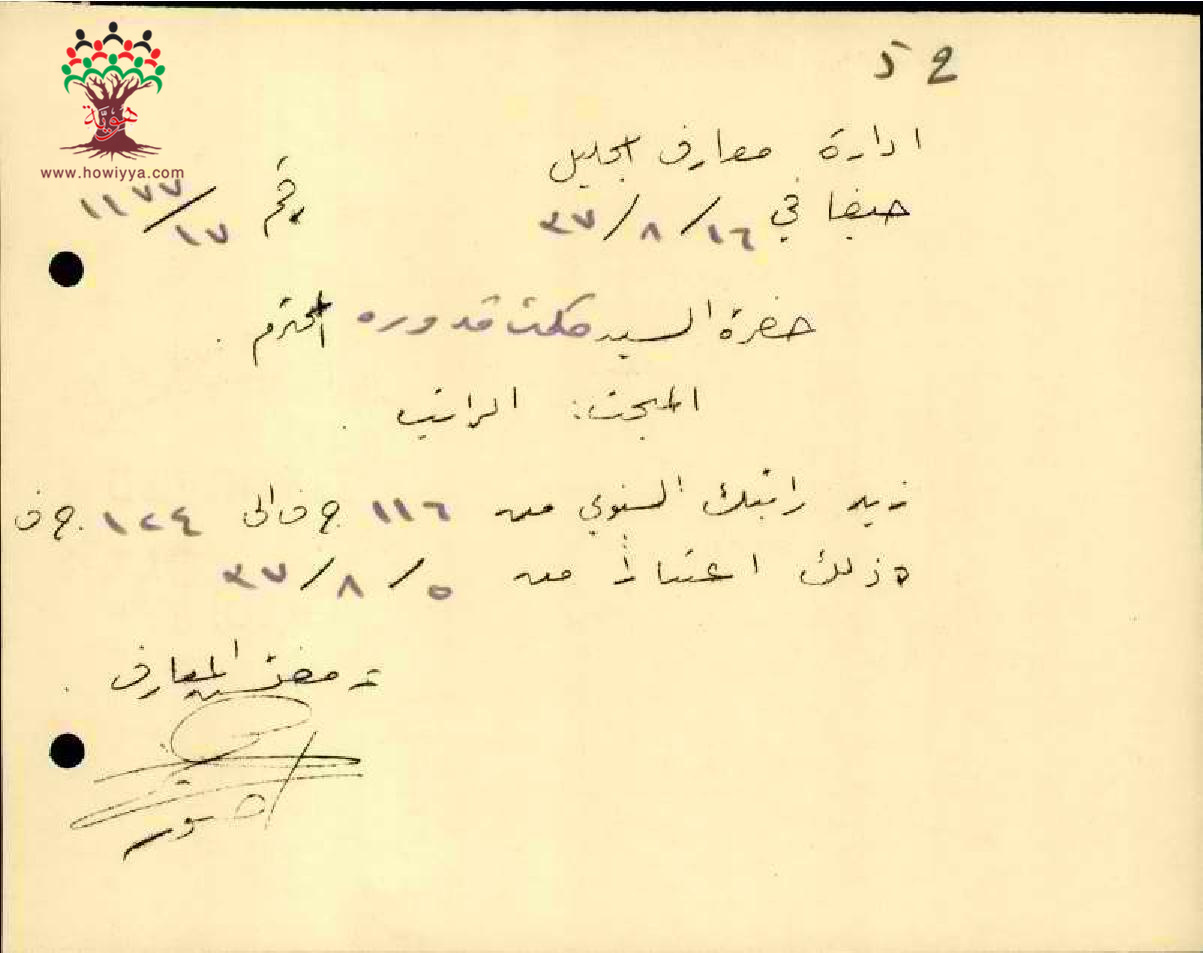 52
هوية
www.howiyya.com
ادارة معارف الجليل
حيفا في ١٦/٨/٣٧
رقم ١١٧٧/١٧
حضرة السيد حكمت قدوره المحترم .
المبحث: الراتب .
زيد راتبك السنوي من ١١٦ ج ف الى ١٢٤ ج ف
وذلك اعتباراً من ٥/٨/٣٧
مفتش المعارف .